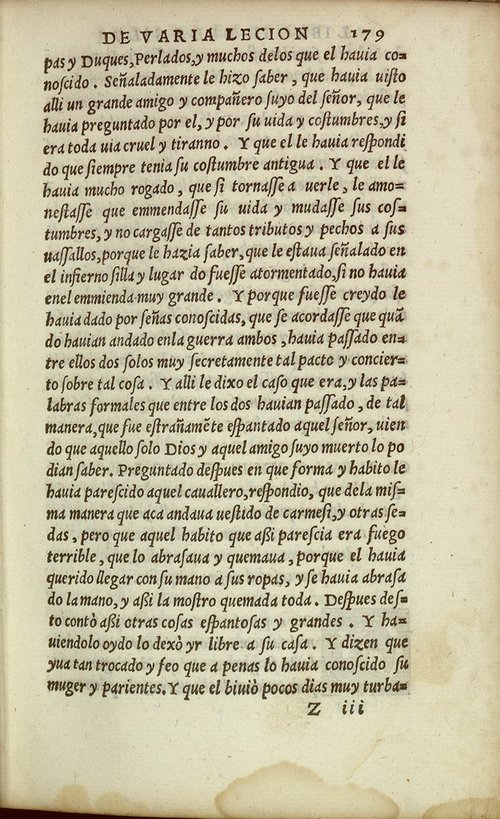 DE VARIA LECION 179
pas y Duques, Perlados, y muchos delos que el hauia co=
noscido. Señaladamente le hizo saber, que hauia uisto
alli un grande amigo y compañero suyo del señor, que le
hauia preguntado por el, y por su uida y costumbres, y si
era toda uia cruel y tiranno. Y que el le hauia respondi
do que siempre tenia su costumbre antigua. Y que el le
hauia mucho rogado, que si tornasse a uerle, le amo=
nestasse que emmendasse su uida y mudasse sus cos=
tumbres, y no cargasse de tantos tributos y pechos a sus
uassallos, porque le hazia saber, que le estaua señalado en
el infierno silla y lugar do fuesse atormentado, si no hauia
enel emmienda muy grande. Y porque fuesse creydo le
hauia dado por señas conoscidas, que se acordasse que quã
do hauian andado enla guerra ambos, hauia passado en=
tre ellos dos solos muy secretamente tal pacto y concier=
to sobre tal cosa. Y alli le dixo el caso que era, y las pa=
labras formales que entre los dos hauian passado, de tal
manera, que fue estrañamẽte espantado aquel señor, uien
do que aquello solo Dios y aquel amigo suyo muerto lo po
dian saber. Preguntado despues en que forma y habito le
hauia parescido aquel cauallero, respondio, que dela mis=
ma manera que aca andaua uestido de carmesi, y otras se=
das, pero que aquel habito que aßi parescia era fuego
terrible, que lo abrasaua y quemaua, porque el hauia
querido llegar con su mano a sus ropas, y se hauia abrasa
do la mano, y aßi la mostro quemada toda. Despues des=
to contò aßi otras cosas espantosas y grandes. Y ha=
uiendolo oydo lo dexò yr libre a su casa. Y dizen que
yua tan trocado y feo que a penas lo hauia conoscido su
muger y parientes. Y que el biuiò pocos dias muy turba=
Z iii